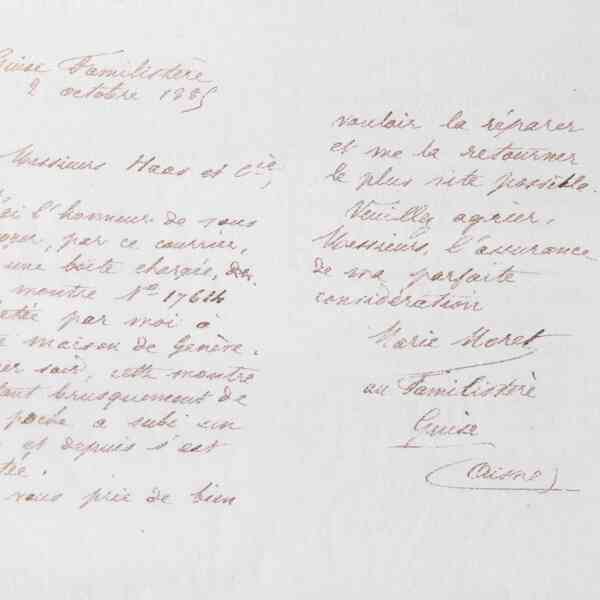 Guise Familistère
2 octobre 1885
Messieurs Haas et Cie,
ai l'honneur de vous
oyer, par ce courrier,
une boîte chargée,
montre No 17624
etée par moi à
e maison de Genève.
er soir, cette montre
tant brusquement de
poche a subi un
et depuis s'est
tée.
vous prie de bien
vouloir la réparer
et me la retourner
le plus vite possible.
Veuillez agréer,
Messieurs, l'assurance
de ma parfaite
considération
Marie Moret
au Familistère
Guise
(Aisne)